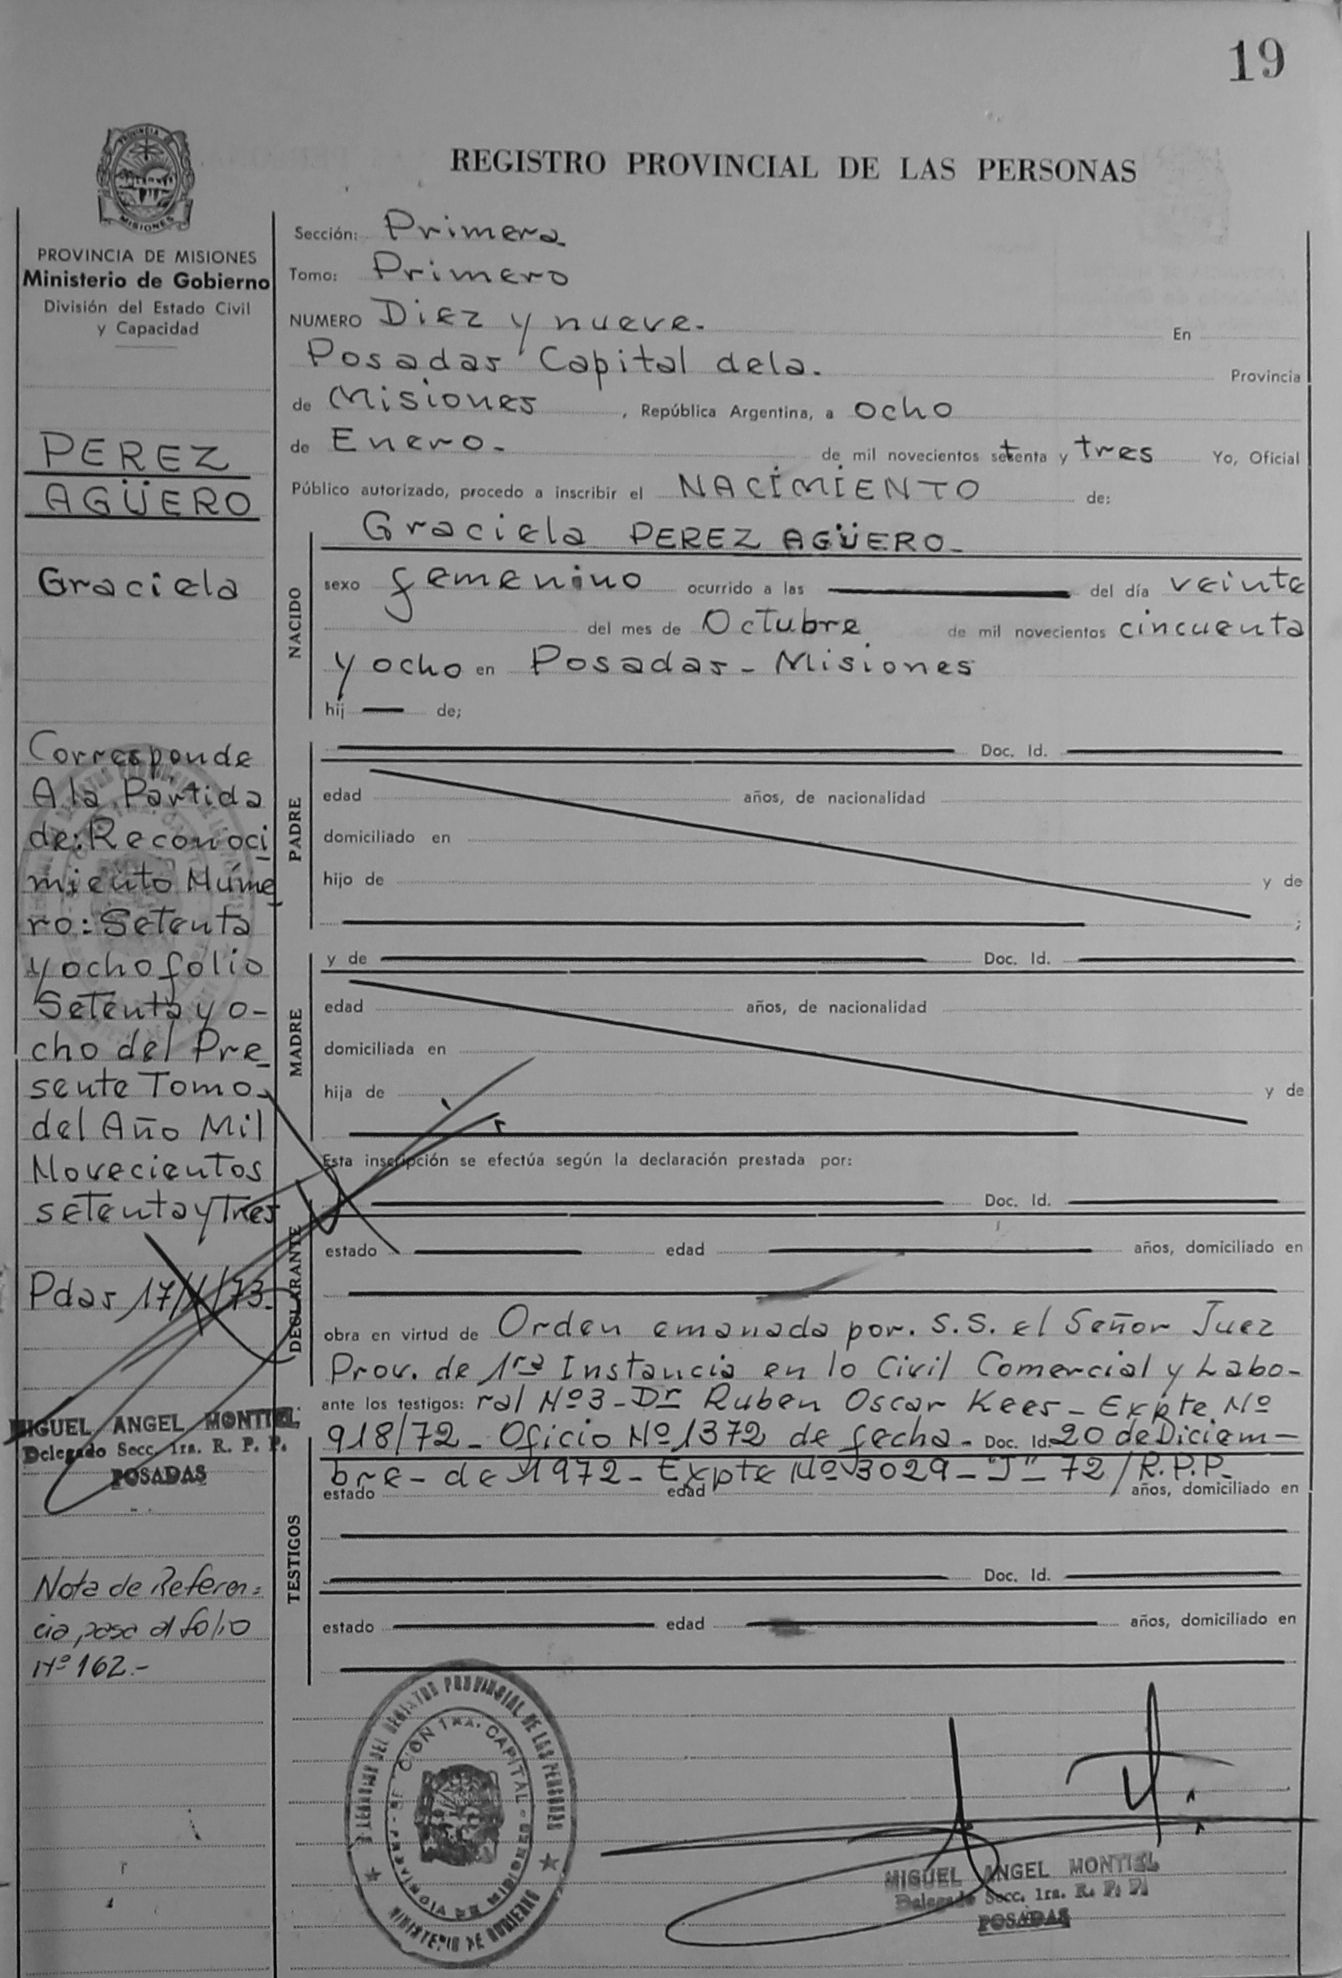 19
PROVINCIA DE
MISIONES
REGISTRO PROVINCIAL DE LAS PERSONAS
PROVINCIA DE MISIONES
Ministerio de Gobierno
División del Estado Civil
y Capacidad
PEREZ
AGÜERO
Graciela
Corresponde
A la Partida
de: Reconoci
miento Núme
ro: Setenta
y ocho folio
Setenta y o-
cho del Pre
sente Tomo
del Año Mil
Novecientos
setenta y Tres
Pdas 17/1/73.
MIGUEL ANGEL MONTIEL
Delegado Secc. 1ra. R. P. P.
POSADAS
Nota de Referen=
cia pasa al folio
Nº 162.-
Sección: Primera
Tomo: Primero
NUMERO Diez y nueve. En
Posadas Capital dela. Provincia
de Misiones, República Argentina, a ocho
de Enero. de mil novecientos setenta y tres Yo, Oficial
Público autorizado, procedo a inscribir el NACIMIENTO de:
NACIDO
Graciela PEREZ AGÜERO
sexo femenino ocurrido a las del día veinte
del mes de Octubre de mil novecientos cincuenta
y ocho en Posadas - Misiones
hij de;
PADRE
Doc. Id.
edad años, de nacionalidad
domiciliado en
hijo de y de
;
MADRE
y de Doc. Id.
edad años, de nacionalidad
domiciliada en
hija de y de
Esta inscripción se efectúa según la declaración prestada por:
DECLARANTE
Doc. Id.
estado edad años, domiciliado en
obra en virtud de Orden emanada por. S.S. el Señor Juez
Prov. de 1ra Instancia en lo Civil Comercial y Labo-
ante los testigos: ral Nº3 - Dr Ruben Oscar Kees - Expte Nº
918/72 - Oficio Nº 1372 de fecha - Doc. Id. 20 de Diciem-
bre - de 1972 - Expte Nº 3029 - "J" - 72/R.P.P.
estado edad años, domiciliado en
TESTIGOS
Doc. Id.
estado edad años, domiciliado en
DEL REGISTRO PROVINCIAL DE LAS PERSONAS
MINISTERIO DE GOBIERNO
CAPITAL
PROVINCIA DE MISIONES
MIGUEL ANGEL MONTIEL
Delegado Secc. 1ra. R. P. P.
POSADAS